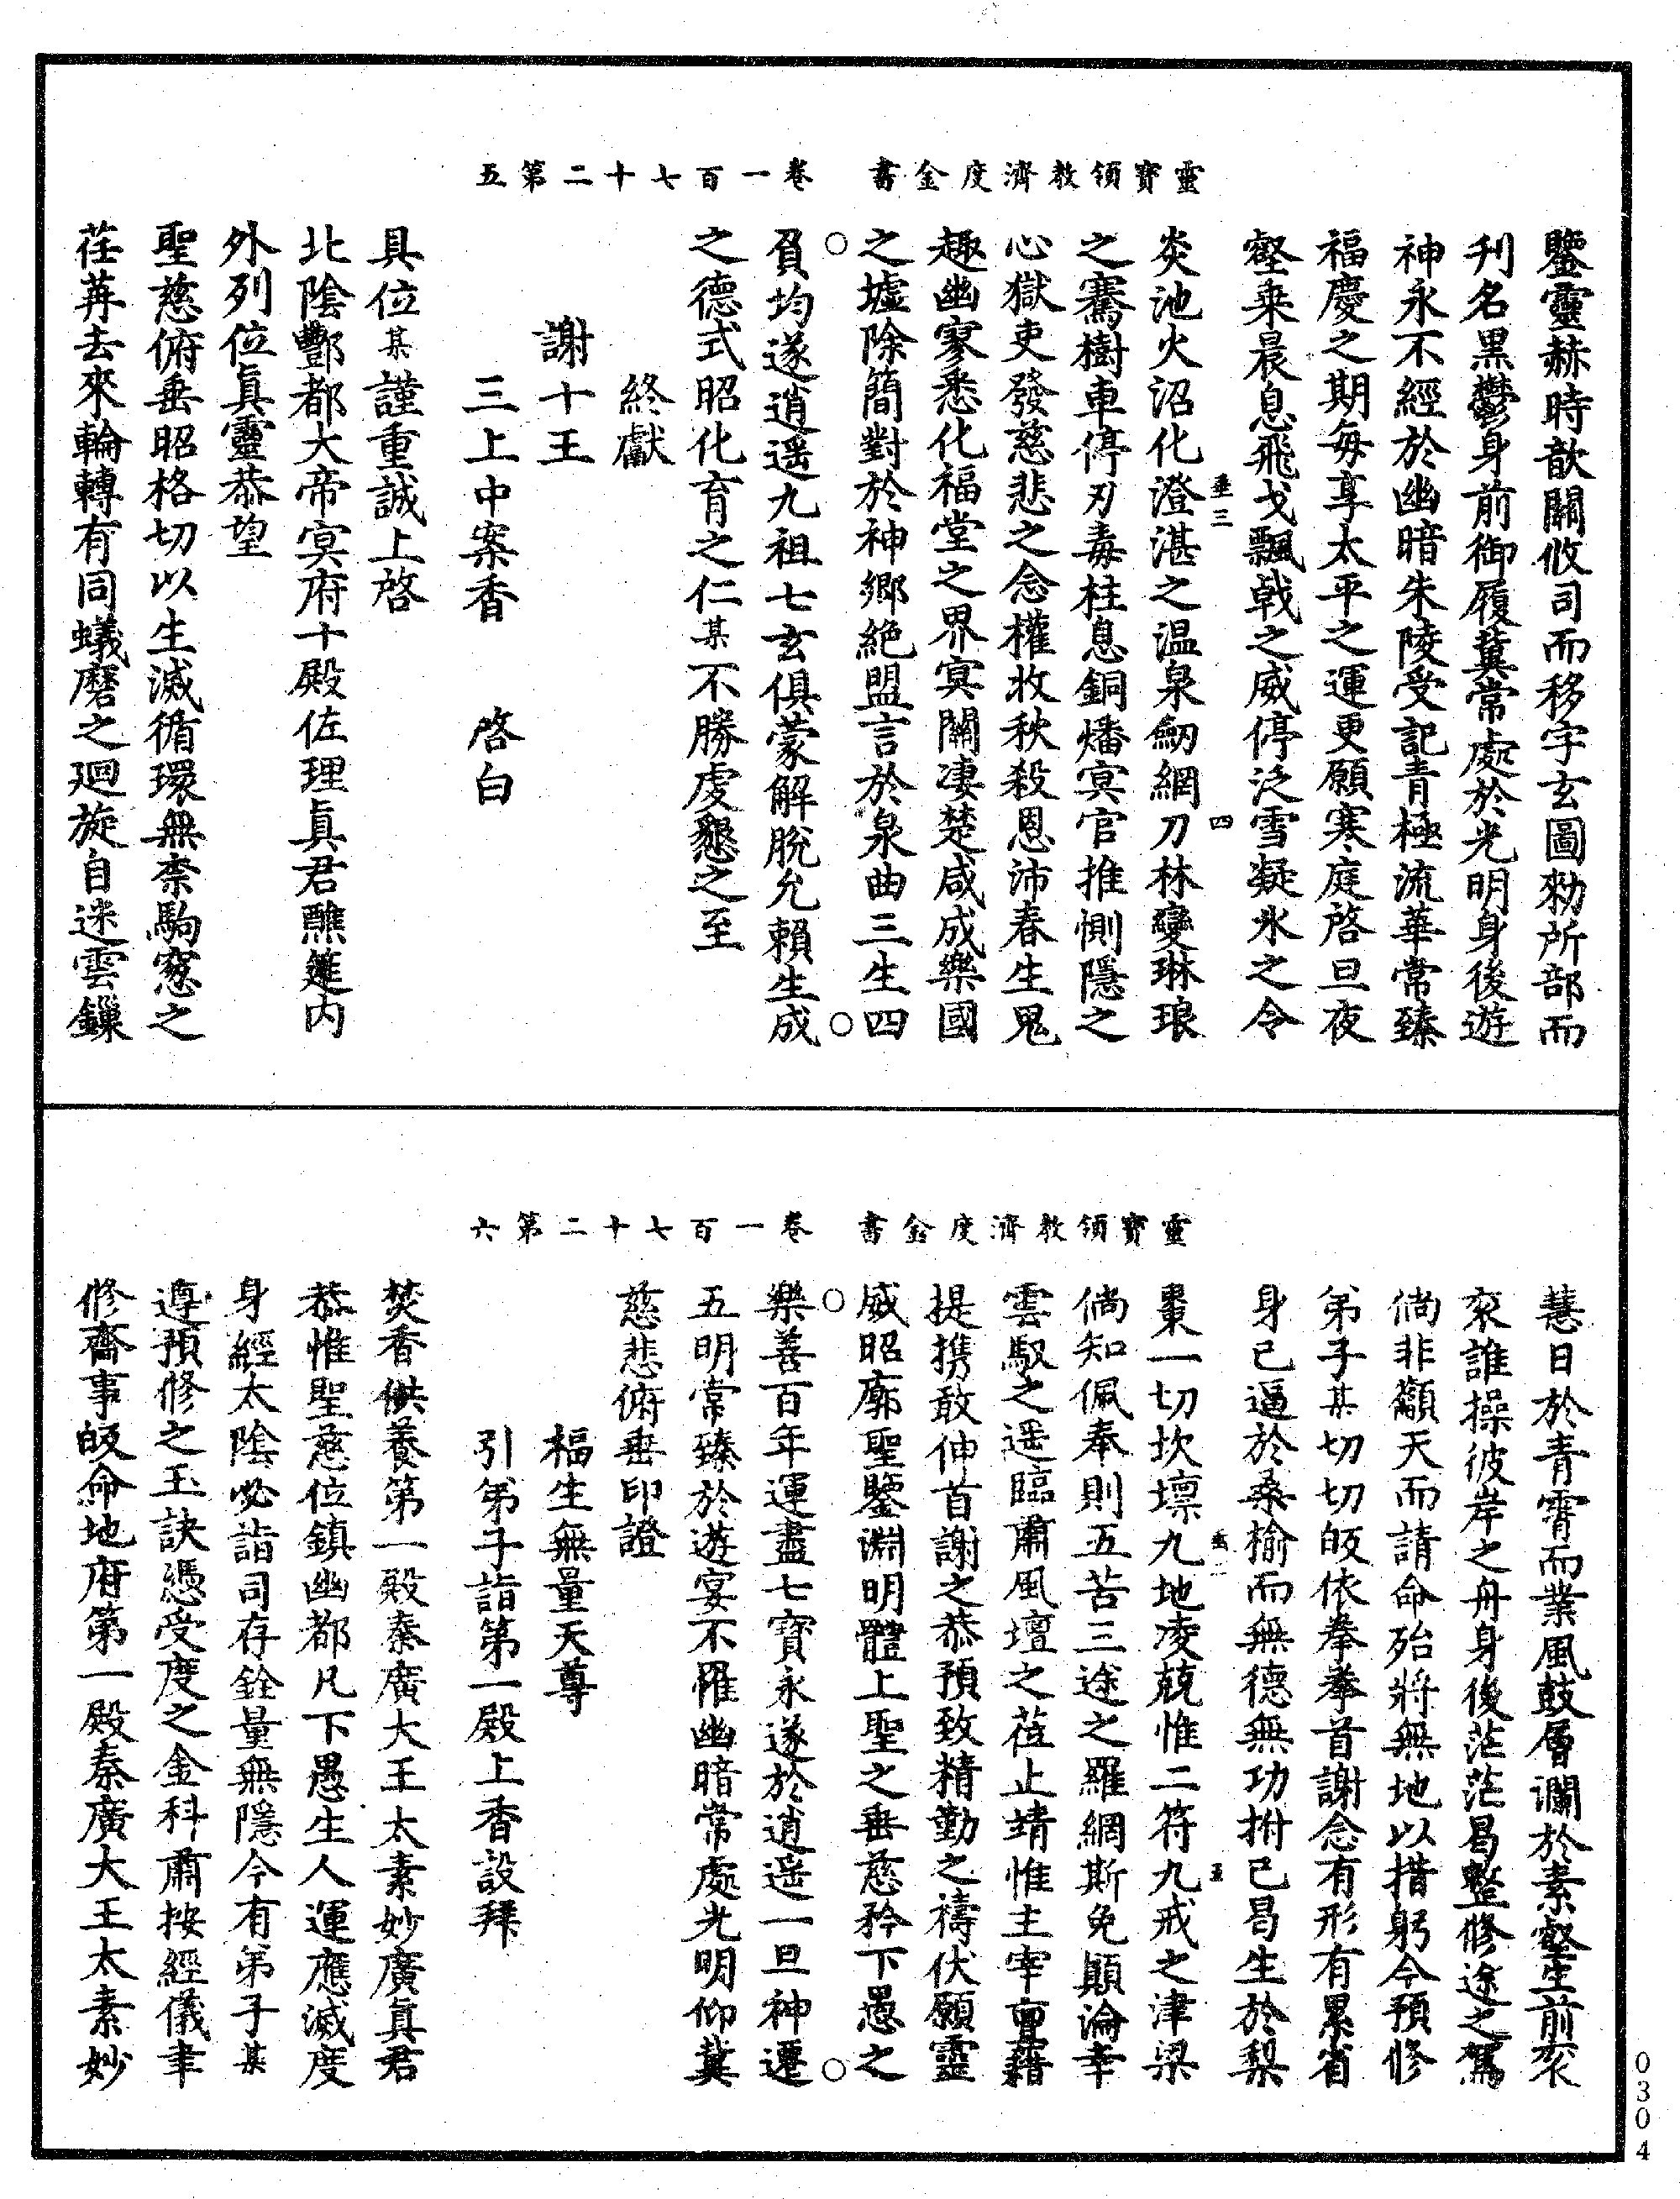 靈寶領教濟度金書　卷一百七十二第五
鑒靈赫時歆關攸司而移字玄圖勑所部而
刋名黑鬱身前御履冀常處於光明身後遊
神永不經於幽暗朱陵受記青極流華常臻
福慶之期每享太平之運更願寒庭啓旦夜
壑乗晨息飛戈飄戟之威停泛雪凝氷之令
炎池火沼化澄湛之温泉劒網刀林變琳琅
之騫樹車停刃毒柱息銅燔冥官推惻隱之
心獄吏發慈悲之念權收秋殺恩沛春生鬼
趣幽寥悉化福堂之界冥關凄楚咸成樂國
之墟除簡對於神鄉絶盟言於泉曲三生四
負均遂逍遥九祖七玄俱蒙解脫允賴生成
之德式昭化育之仁某不勝虔懇之至
終獻
謝十王
三上中案香　啓白
具位某謹重誠上啓
北陰酆都大帝冥府十殿佐理眞君醮筵内
外列位眞靈恭望
聖慈俯垂昭格切以生滅循環無柰駒窓之
荏苒去來輪轉有同蟻磨之廻旋自迷雲鏁
靈寶領教濟度金書　卷一百七十二第六
慧日於青霄而業風鼓層瀾於素壑生前衮
衮誰操彼岸之舟身後茫茫曷整修途之駕
倘非籲天而請命殆將無地以措躬今預修
弟子某切切皈依拳拳首謝念有形有累省
身已逼於桑榆而無德無功拊己曷生於梨
棗一切坎壈九地凌兢惟二符九戒之津梁
倘知佩奉則五苦三途之羅網斯免顚淪幸
雲馭之遥臨肅風壇之莅止靖惟主宰實藉
提携敢伸首謝之恭預致精勤之禱伏願靈
威昭廓聖鑒淵明體上聖之垂慈矜下愚之
樂善百年運盡七寶永遂於逍遥一旦神遷
五明常臻於遊宴不罹幽暗常處光明仰冀
慈悲俯垂印證
福生無量天尊
引弟子詣第一殿上香設拜
焚香供養第一殿秦廣大王太素妙廣眞君
恭惟聖慈位鎮幽都凡下愚生人運應滅度
身經太陰必詣司存銓量無隱今有弟子某
遵預修之玉訣憑受度之金科肅按經儀聿
修齋事皈命地府第一殿秦廣大王太素妙
0304